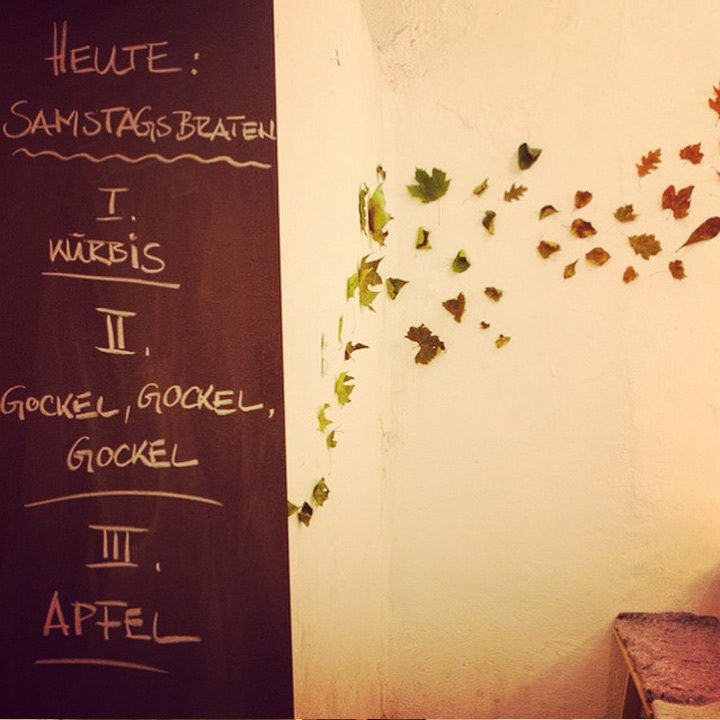 HEUTE:
SAMSTAGSBRATEN
I.
KÜRBiS
II.
GOCKEL, GOCKEL,
GOCKEL
III.
APFEL